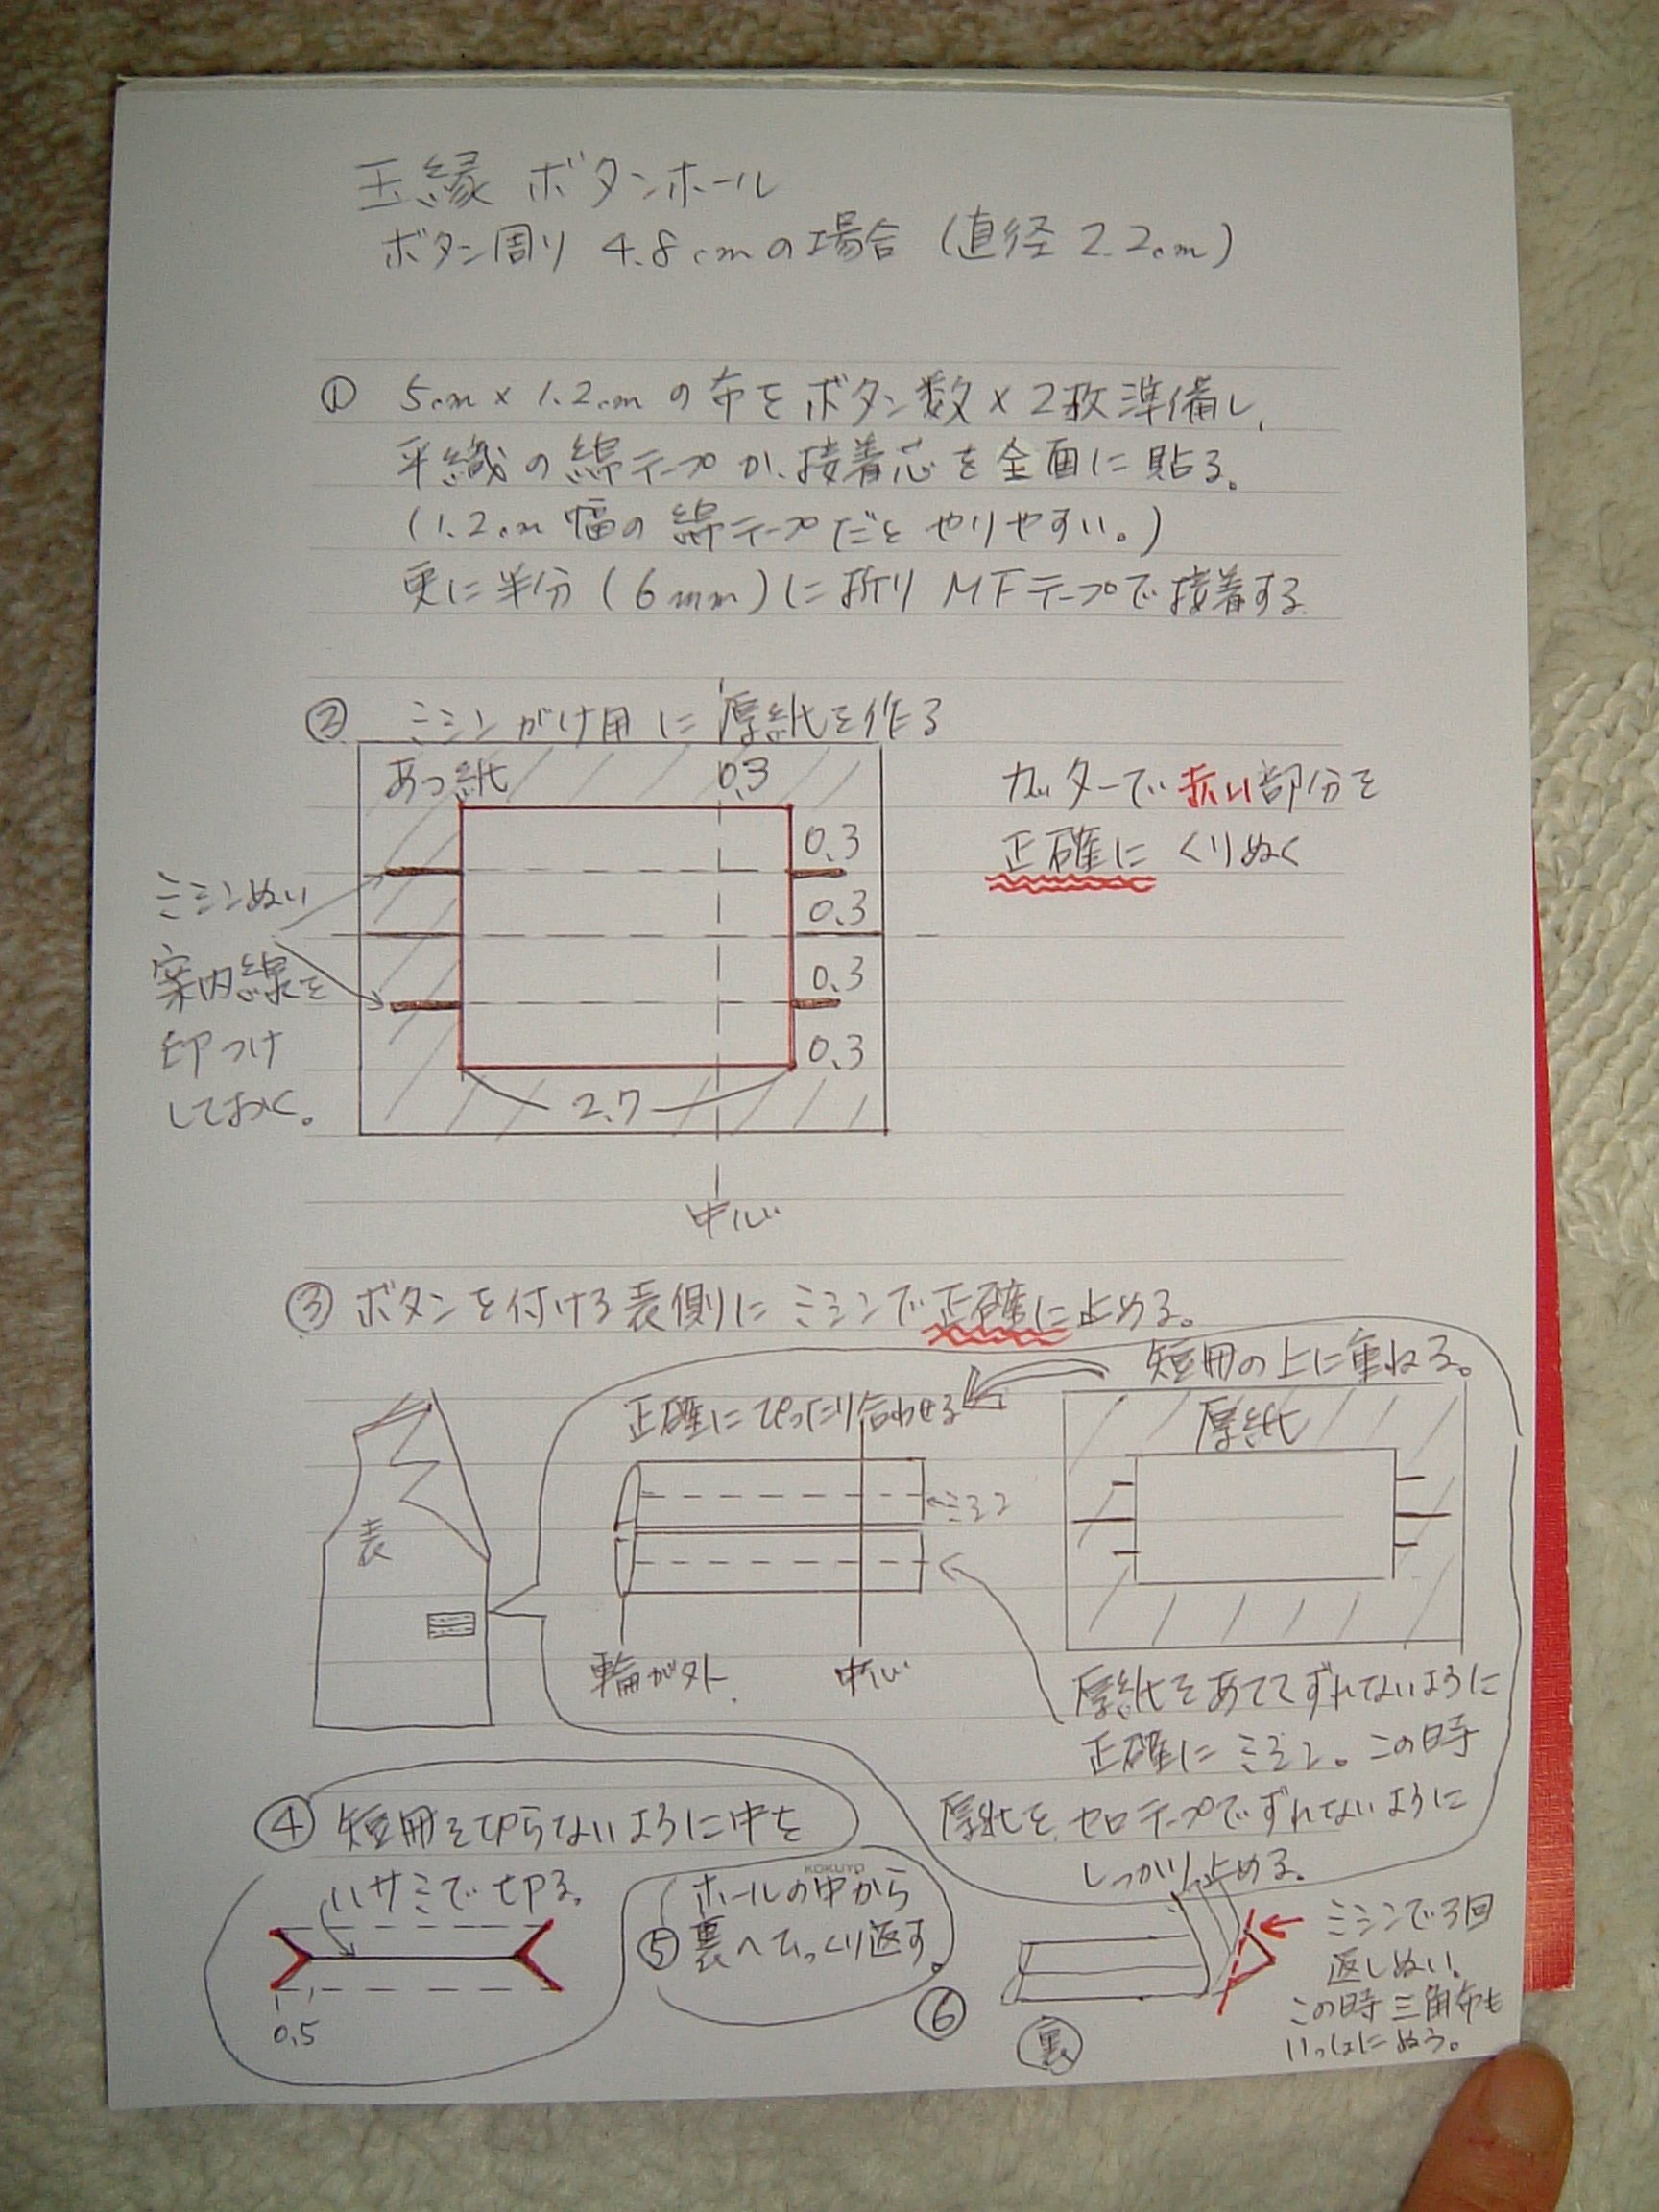 玉縁 ボタンホール
ボタン周り 4.8cmの場合 (直径 2.2cm)
① 5cm × 1.2cm の布をボタン数×2枚準備し、
平織の綿テープか、接着芯を全面に貼る。
(1.2cm 幅の綿テープだとやりやすい。)
更に半分(6mm)に折りMFテープで接着する
② ミシンがけ用に厚紙を作る
あつ紙
0.3
カッターで赤い部分を
正確にくりぬく
0.3
0.3
0.3
0.3
ミシンぬい
案内線を
印つけ
しておく。
2.7
中心
③ ボタンを付ける表側にミシンで正確に止める。
短冊の上に重ねる。
正確にぴったり合わせる
厚紙
表
ミシン
輪が外
中心
厚紙をあててずれないように
正確にミシン。この時
厚紙をセロテープでずれないように
しっかり止める。
④ 短冊を切らないように中を
ハサミで切る。
0.5
KOKUYO
⑤ ホールの中から
裏へひっくり返す。
⑥
裏
ミシンで3回
返しぬい。
この時三角布も
いっしょにぬう。